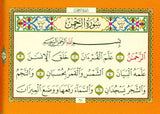 سورة الرحمن
بسم الله الرحمن الرحيم
الرحمن علم القرءان خلق الإنسن
علمه البيان الشمس والقمر بحسبان والنجم
والشجر يسجدان والسماء رفعها ووضع الميزان